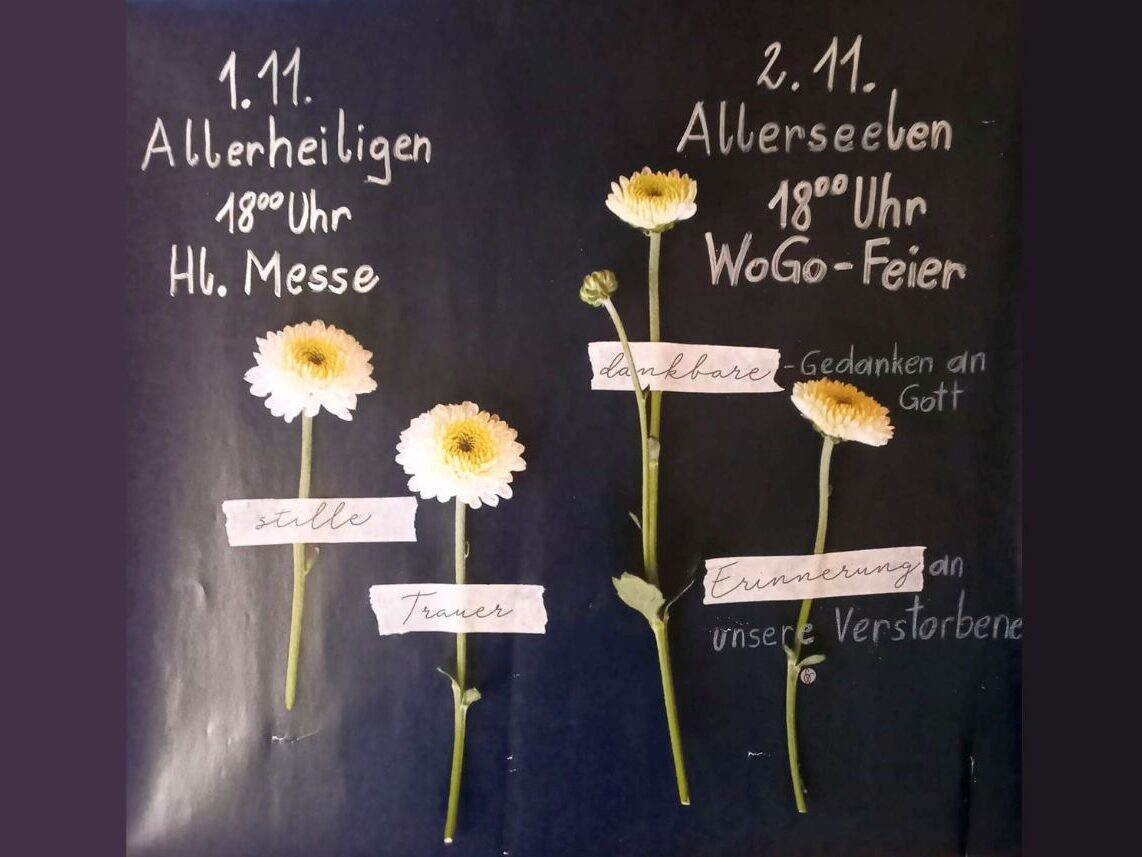 1.11.
Allerheiligen
18⁰⁰ Uhr
Hl. Messe
stille
Trauer
2.11.
Allerseelen
18⁰⁰ Uhr
WoGo-Feier
dankbare - Gedanken an
Gott
Erinnerung an
unsere Verstorbene